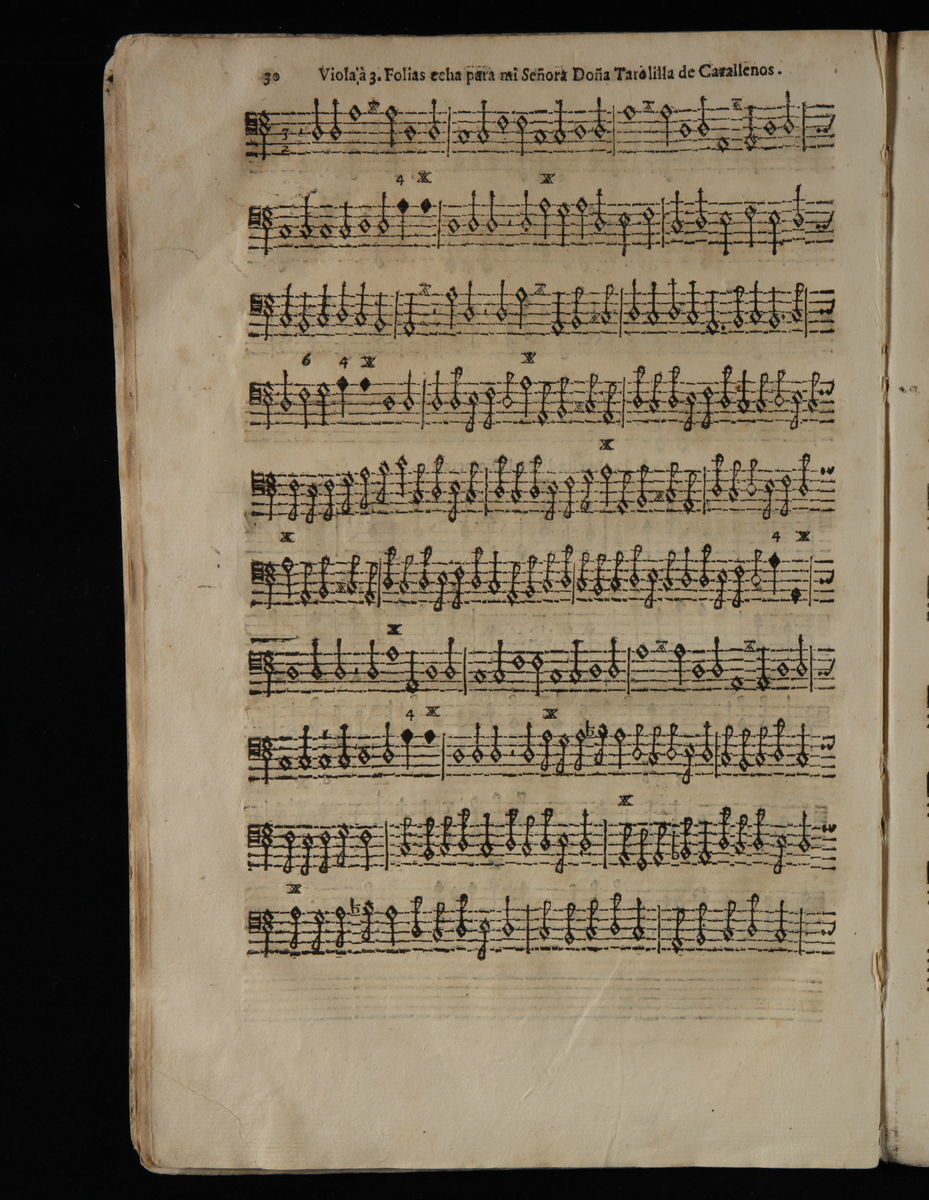 30 Viola, à 3. Folias echa para mi Señora Doña Tarolilla de Carallenos.
3
2
4
6 4
4
4